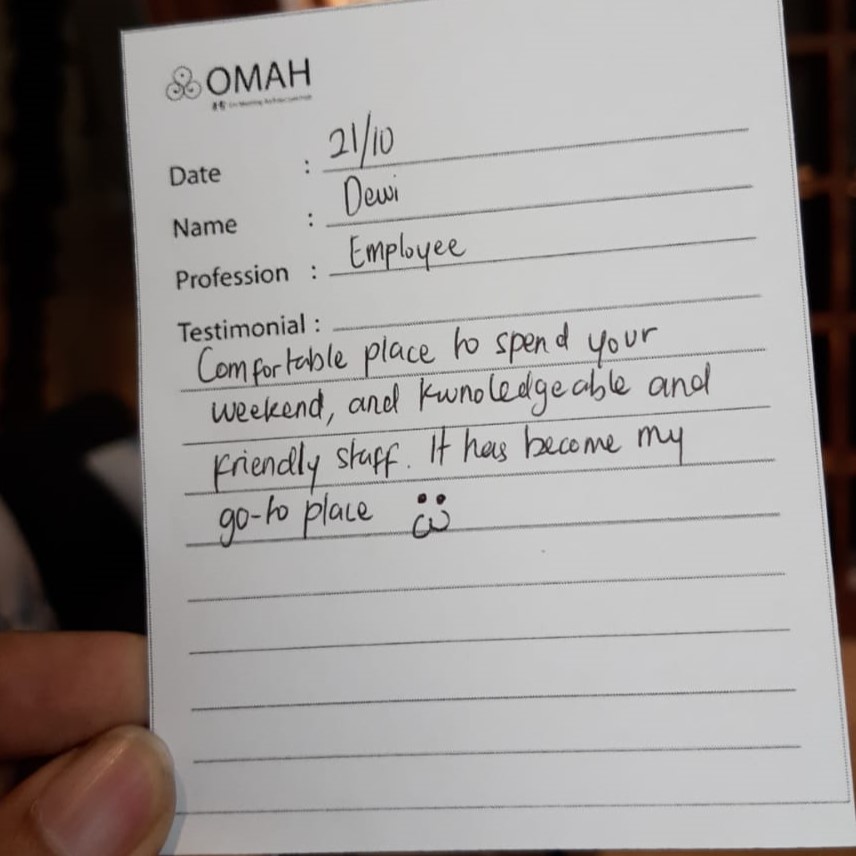 OMAH
Date : 21/10
Name : Dewi
Profession : Employee
Testimonial :
Comfortable place to spend your
weekend, and kwnoledgeable and
friendly staff. It has become my
go-to place